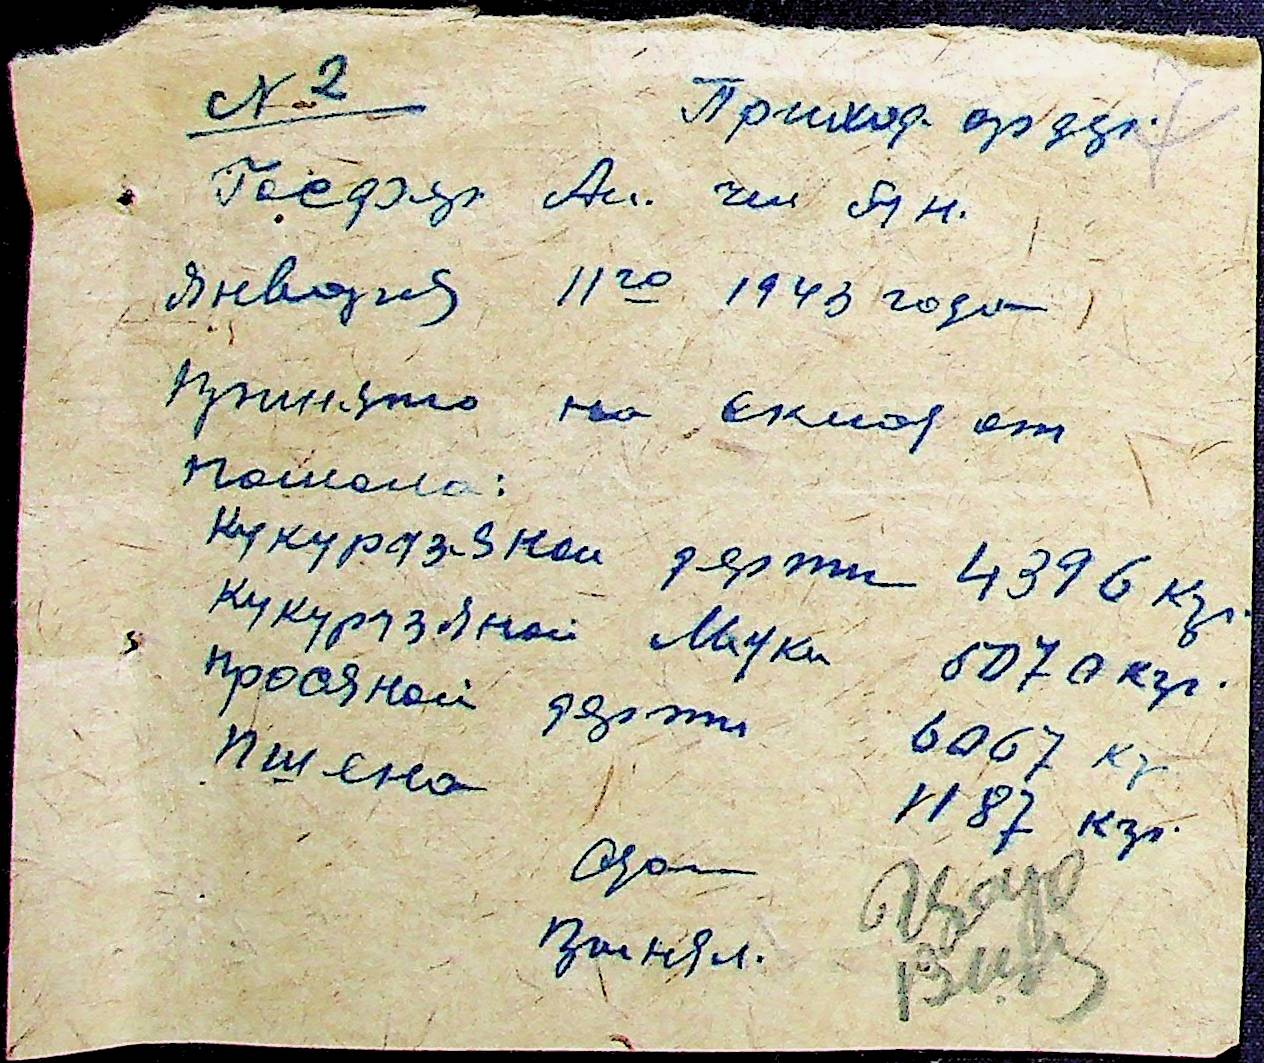 № 2 Приход. ордер.
Января 11го 1943 года
Принято на склад от
помола:
Кукурузяной дерти 4396 кгр.
Кукурузяной Муки 5070 кгр.
Просяной дерти 6067 кг
Пшена 1187 кгр.
Сдал
Принял.